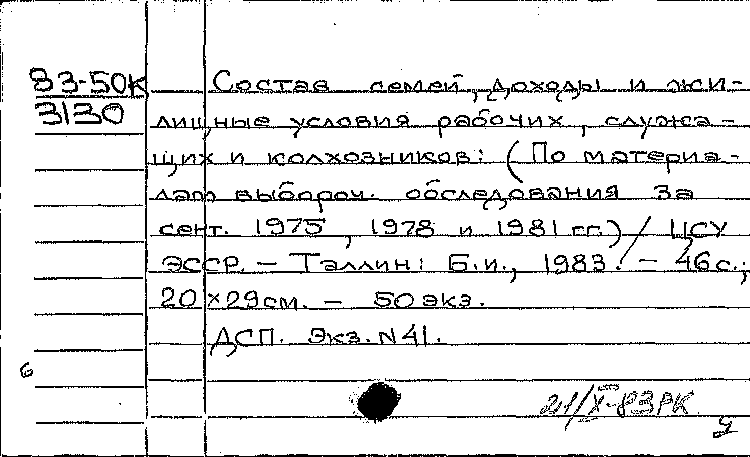 83-50К
3130
Состав семей, доходы и жи-
лищные условия рабочих, служа-
щих и колхозников: (По материа-
лам выбороч. обследования за
сент. 1975, 1978 и 1981 гг.) / ЦСУ
ЭССР. - Таллин: Б.и., 1983. - 46 с.;
20×29 см. - 50 экз.
ДСП. Экз. N 41.
6
21/X-83 РК